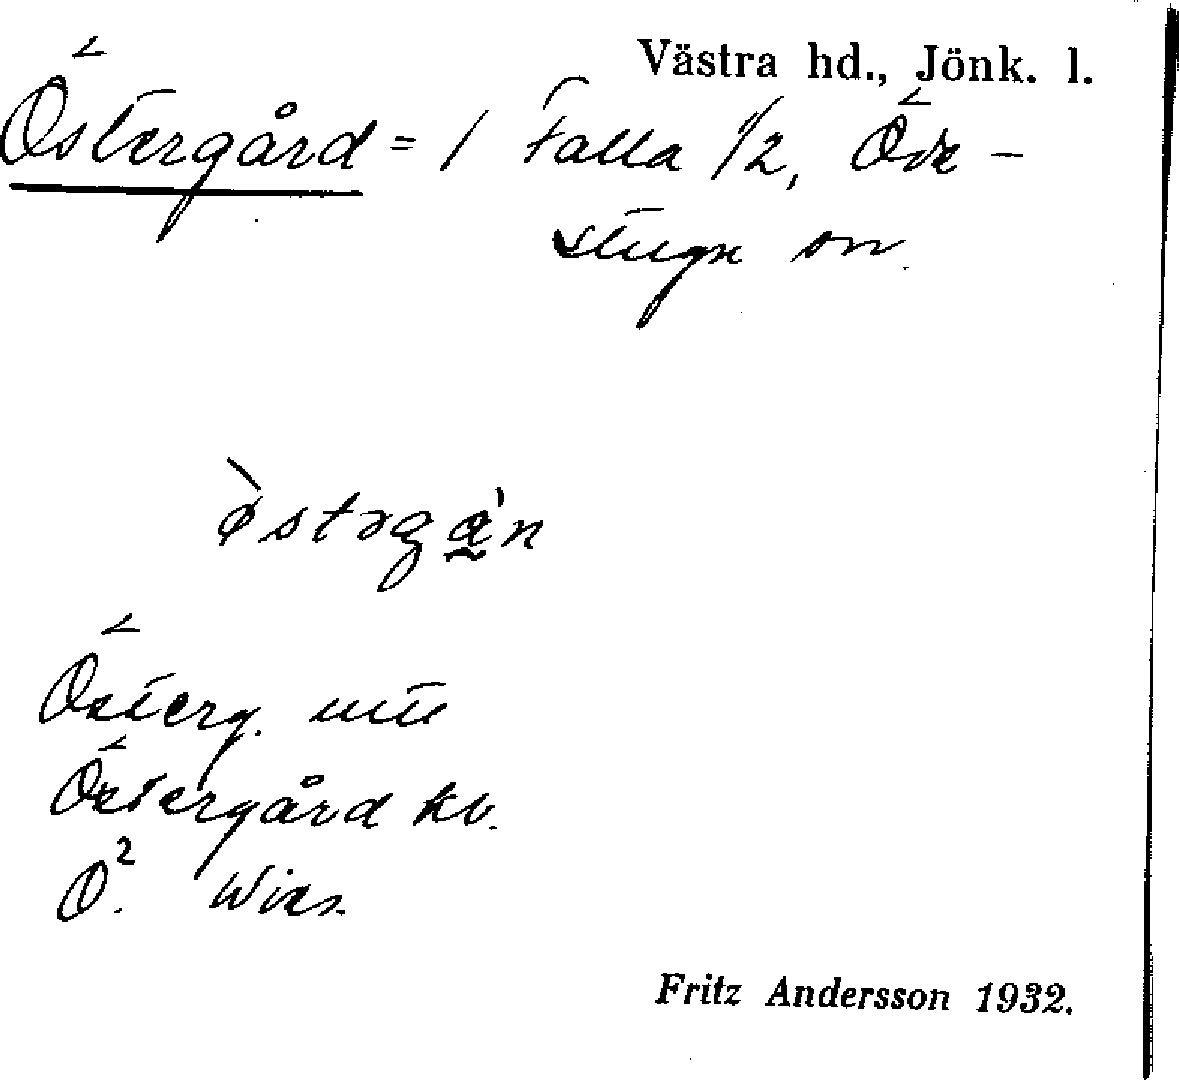 Västra hd., Jönk. l.
Östergård = 1 Falla 1/2, Öde-
stugu sn.
Österg.
Östergård kv.
Ö². Wies.
Fritz Andersson 1932.